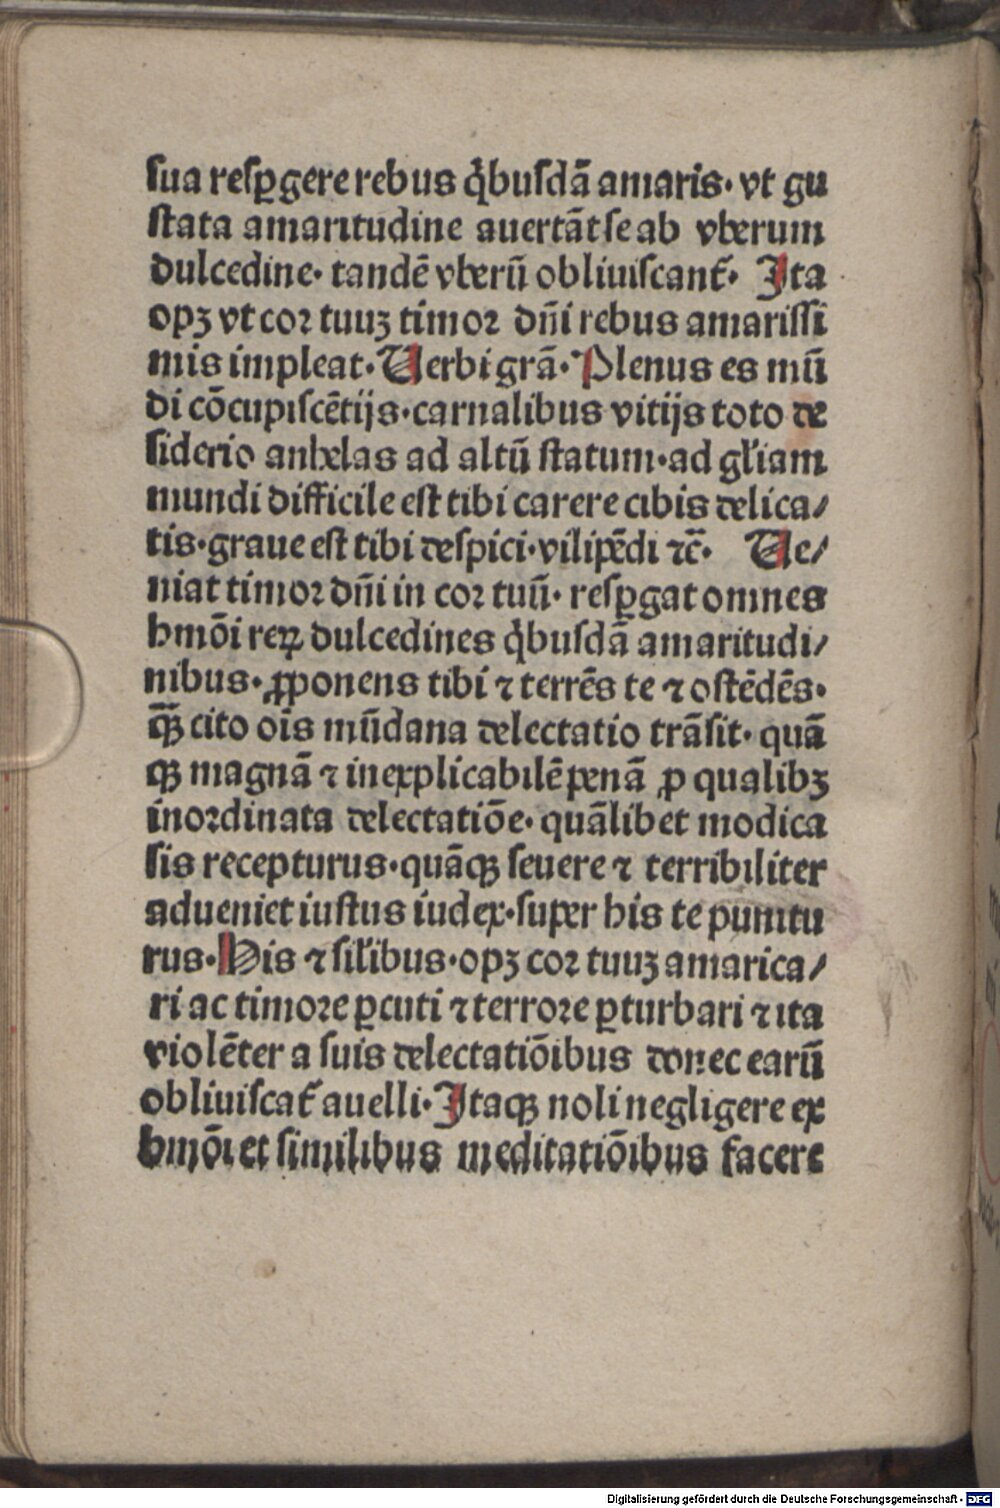 ſua reſꝑgere rebus q̇buſdā amaris· vt gu
ſtata amaritudine auertāt ſe ab vberum
dulcedine· tandē vberū obliuiſcant᷑· Ita
opꝫ vt coꝛ tuuꝫ timoꝛ dn̄i rebus amariſſi
mis impleat· Uerbi grā· Plenus es mū
di cōcupiſcētijs·carnalibus vitijs toto de
ſiderio anhelas ad altū ſtatum·ad gl’iam
mundi difficile eſt tibi carere cibis delica/
tis·graue eſt tibi deſpici·vilipēdi ⁊c̄· Ue/
niat timoꝛ dn̄i in coꝛ tuū· reſꝑgat omnes
hmōi reꝝ dulcedines q̇buſdā amaritudi/
nibus·ꝓponens tibi ⁊ terrēs te ⁊ oſtēdēs·
qꝫ̄ cito oīs mūdana delectatio trāſit· quā
qꝫ magnā ⁊ inexplicabilē penā ꝓ qualibꝫ
inoꝛdinata delectatiōe· quālibet modica
ſis recepturus·quāqꝫ ſeuere ⁊ terribiliter
adueniet iuſtus iudex·ſuper his te punitu
rus·His ⁊ ſil’ibus·opꝫ coꝛ tuuꝫ amarica/
ri ac timoꝛe ꝑcuti ⁊ terroꝛe ꝑturbari ⁊ ita
violēter a ſuis delectatiōibus donec earū
obliuiſcat᷑ auelli·Itaqꝫ noli negligere ex
hmōi et ſimilibus meditatiōibus facere
Digitalisierung gefördert durch die Deutsche Forschungsgemeinschaft - DFG